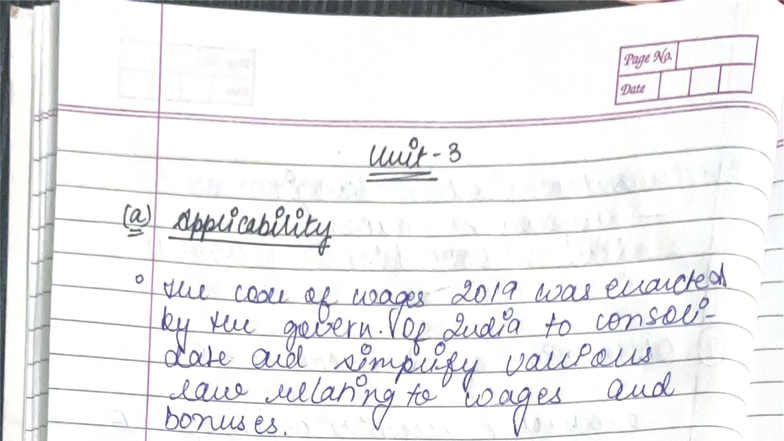 Page No.
Date
Unit - 3
(a) Applicability
The code of wages 2019 was enacted
by the govern. of India to consoli-
date and simplify various
laws relating to wages and
bonuses.